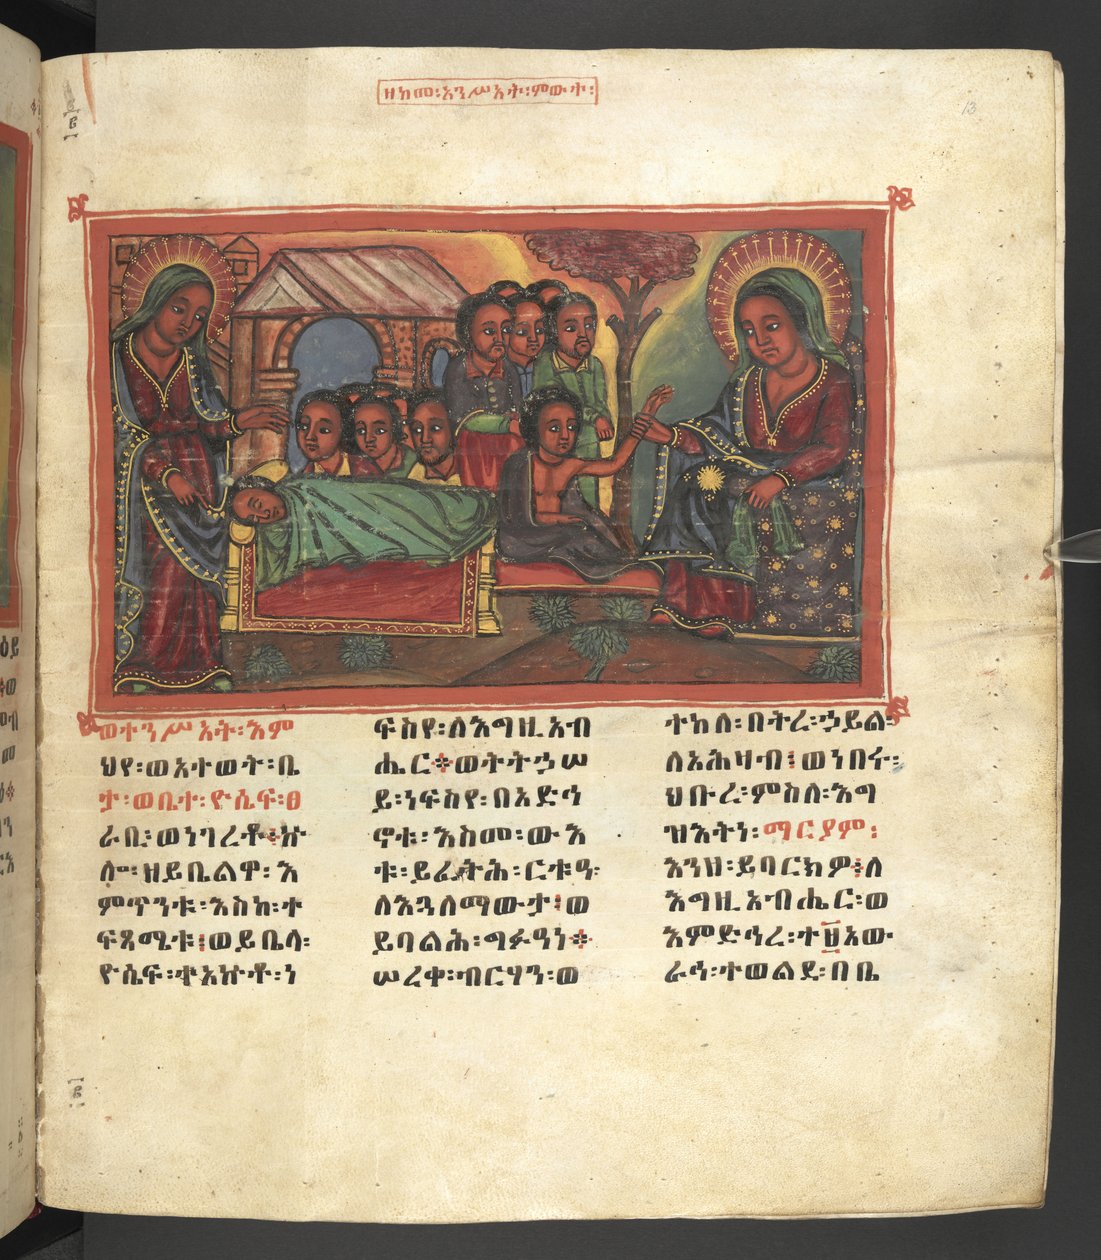 ዘከመ፡አንሥአት፡ምውተ፡
13
ወተንሥአት፡እም
ህየ፡ወአተወት፡ቤ
ታ፡ወቤተ፡ዮሴፍ፡ፀ
ራቢ፡ወነገረቶ፡ኵ
ሎ፡ዘይቤልዋ፡እ
ምጥንቱ፡እስከ፡ተ
ፍጻሜቱ፡ወይቤላ፡
ዮሴፍ፡ተአኵቶ፡ነ
ፍስየ፡ለእግዚአብ
ሔር፡ወትትኃሠ
ይ፡ነፍስየ፡በአድኅ
ኖቱ፡እስመ፡ውእ
ቱ፡ይፈትሕ፡ርቱዓ፡
ለእጓለማውታ፡ወ
ይባልሕ፡ግፉዓነ፡
ሠረቀ፡ብርሃን፡ወ
ተከለ፡በትረ፡ኃይል፡
ለአሕዛብ፡ወነበሩ፡
ህቡረ፡ምስለ፡እግ
ዝእትነ፡ማርያም፡
እንዘ፡ይባርክዎ፡ለ
እግዚአብሔር፡ወ
እምድኅረ፡ተ፱አው
ራኅ፡ተወልደ፡በቤ